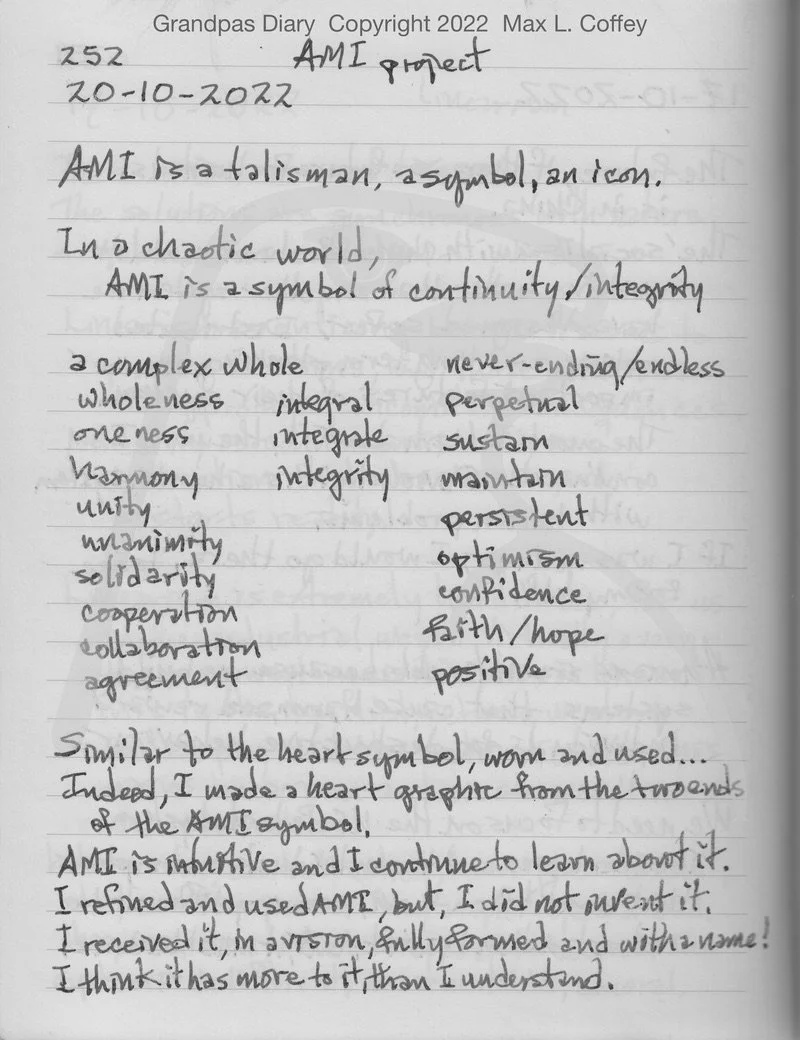 Grandpas Diary Copyright 2022 Max L. Coffey
252 AMI project
20-10-2022
AMI is a talisman, a symbol, an icon.
In a chaotic world,
AMI is a symbol of continuity/integrity
a complex whole never-ending/endless
wholeness integral perpetual
oneness integrate sustain
harmony integrity maintain
unity persistent
unanimity optimism
solidarity confidence
cooperation faith/hope
collaboration positive
agreement
Similar to the heart symbol, worn and used...
Indeed, I made a heart graphic from the two ends
of the AMI symbol.
AMI is intuitive and I continue to learn about it.
I refined and used AMI, but, I did not invent it.
I received it, in a vision, fully formed and with a name!
I think it has more to it, than I understand.